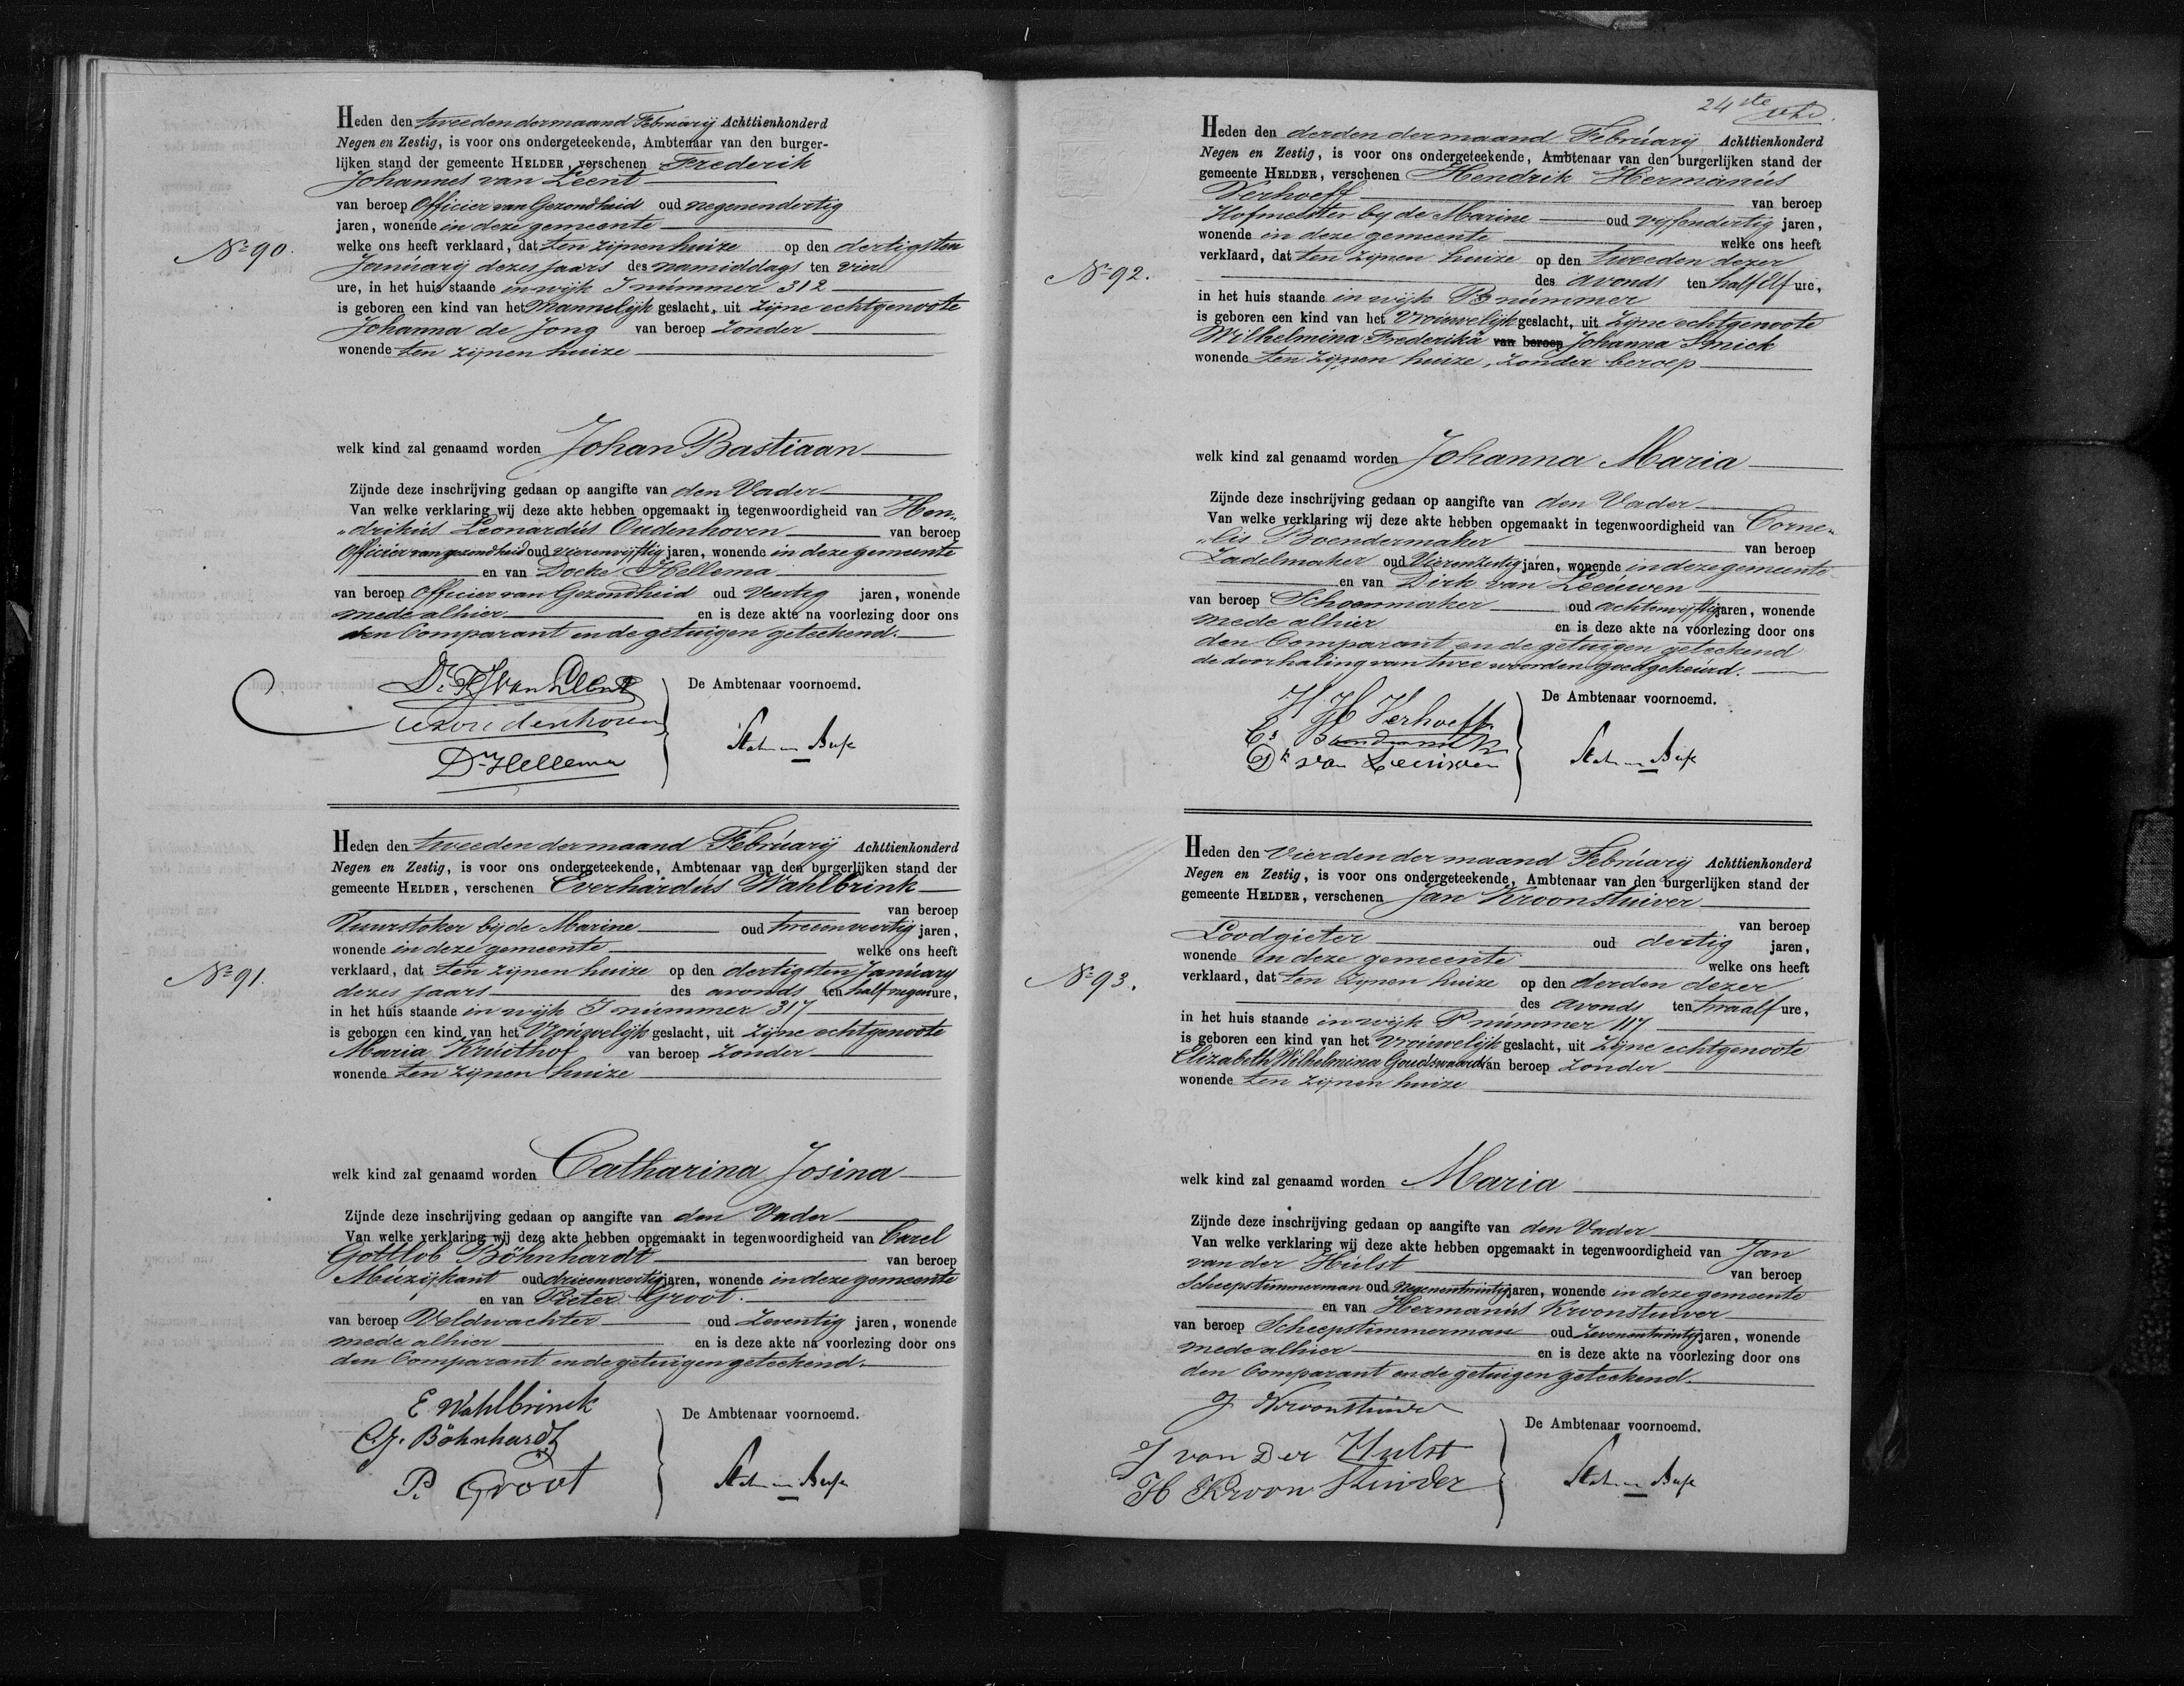 Heden den tweeden der maand Februarij Achttienhonderd
Negen en Zestig, is voor ons ondergeteekende, Ambtenaar van den burger-
lijken stand der gemeente HELDER, verschenen Frederik
Johannes van Leent
van beroep Officier van Gezondheid oud negenendertig
jaren, wonende in deze gemeente
No 90.
welke ons heeft verklaard, dat ten zijnen huize op den dertigsten
Januarij dezes jaars des namiddags ten vier
ure, in het huis staande in wijk I nummer 312
is geboren een kind van het Mannelijk geslacht, uit zijne echtgenoote
Johanna de Jong van beroep zonder
wonende ten zijnen huize
welk kind zal genaamd worden Johan Bastiaan
Zijnde deze inschrijving gedaan op aangifte van den Vader
Van welke verklaring wij deze akte hebben opgemaakt in tegenwoordigheid van Hen„
„drikus Leonardus Oudenhoven van beroep
Officier van gezondheid oud vierenvijftig jaren, wonende in deze gemeente
en van Doeke Hellema
van beroep Officier van Gezondheid oud Veertig jaren, wonende
mede alhier en is deze akte na voorlezing door ons
den Comparant en de getuigen geteekend.
Dr. FJ van Leent
De Ambtenaar voornoemd.
Oudenhoven
Dr Hellema
Heden den tweeden der maand Februarij Achttienhonderd
Negen en Zestig, is voor ons ondergeteekende, Ambtenaar van den burgerlijken stand der
gemeente HELDER, verschenen Everhardus Wahlbrink
van beroep
Vuurstoker bij de Marine oud tweeenveertig jaren,
wonende in deze gemeente welke ons heeft
No 91.
verklaard, dat ten zijnen huize op den dertigsten Januarij
dezes jaars des avonds ten half negen ure,
in het huis staande in wijk I nummer 317
is geboren een kind van het Vrouwelijk geslacht, uit zijne echtgenoote
Maria Kruithof van beroep zonder
wonende ten zijnen huize
welk kind zal genaamd worden Catharina Josina
Zijnde deze inschrijving gedaan op aangifte van den Vader
Van welke verklaring wij deze akte hebben opgemaakt in tegenwoordigheid van Carel
Gottlob Böhnhardt van beroep
Muzijkant oud drieenveertig jaren, wonende in deze gemeente
en van Pieter Groot.
van beroep Veldwachter oud Zeventig jaren, wonende
mede alhier en is deze akte na voorlezing door ons
den Comparant en de getuigen geteekend.
E Wahlbrinck
De Ambtenaar voornoemd.
CG. Böhnhardt
P. Groot
24ste
Heden den derden der maand Februarij Achttienhonderd
Negen en Zestig, is voor ons ondergeteekende, Ambtenaar van den burgerlijken stand der
gemeente HELDER, verschenen Hendrik Hermanus
Verhoeff van beroep
Hofmeester bij de Marine oud vijfendertig jaren,
wonende in deze gemeente welke ons heeft
No 92.
verklaard, dat ten zijnen huize op den tweeden dezer
des avonds ten half Elf ure,
in het huis staande in wijk B nummer
is geboren een kind van het Vrouwelijk geslacht, uit zijne echtgenoote
Wilhelmina Frederika van beroep Johanna Smick
wonende ten zijnen huize, zonder beroep
welk kind zal genaamd worden Johanna Maria
Zijnde deze inschrijving gedaan op aangifte van den Vader
Van welke verklaring wij deze akte hebben opgemaakt in tegenwoordigheid van Corne„
„lis Boendermaker van beroep
Zadelmaker oud Vierenzestig jaren, wonende in deze gemeente
en van Dirk van Leeuwen
van beroep Schoenmaker oud achtenvijftig jaren, wonende
mede alhier en is deze akte na voorlezing door ons
den Comparant en de getuigen geteekend
de doorhaling van twee woorden goedgekeurd.
H H Verhoeff
De Ambtenaar voornoemd.
Dk van Leeuwen
Heden den Vierden der maand Februarij Achttienhonderd
Negen en Zestig, is voor ons ondergeteekende, Ambtenaar van den burgerlijken stand der
gemeente HELDER, verschenen Jan Kroonstuiver
van beroep
Loodgieter oud dertig jaren,
wonende in deze gemeente welke ons heeft
No 93.
verklaard, dat ten zijnen huize op den derden dezer
des avonds ten twaalf ure,
in het huis staande in wijk P nummer 117
is geboren een kind van het Vrouwelijk geslacht, uit zijne echtgenoote
Elizabeth Wilhelmina Goudswaard van beroep zonder
wonende ten zijnen huize
welk kind zal genaamd worden Maria
Zijnde deze inschrijving gedaan op aangifte van den Vader
Van welke verklaring wij deze akte hebben opgemaakt in tegenwoordigheid van Jan
van der Hulst van beroep
Scheepstimmerman oud Negenentwintig jaren, wonende in deze gemeente
en van Hermanus Kroonstuiver
van beroep Scheepstimmerman oud zevenentwintig jaren, wonende
mede alhier en is deze akte na voorlezing door ons
den Comparant en de getuigen geteekend.
J Kroonstuiver
De Ambtenaar voornoemd.
J van Der Hulst
H Kroon Stuiver